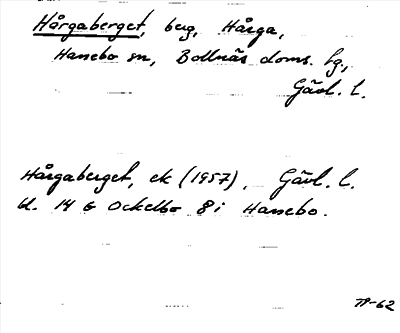 Hårgaberget, berg, Hårga,
Hanebo sn, Bollnäs doms. lg.,
Gävl. l.
Hårgaberget, ek (1957), Gävl. l.
bl. 14 G Ockelbo 8 i Hanebo.
-62